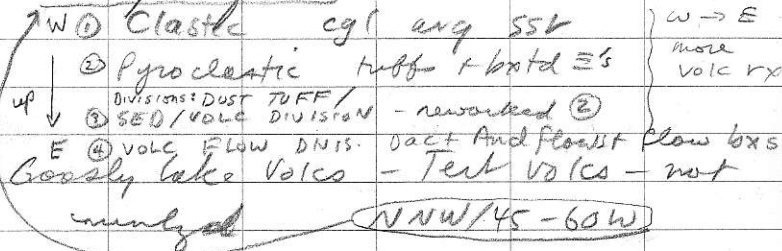 W ① Clastic cgl arg sst W → E
② Pyroclastic tuff + bxtd Ξ's more volc rx
up DIVISIONS: DUST TUFF /
③ SED/VOLC DIVISION - reworked ②
E ④ VOLC FLOW DIVIS. Dact And flows + flow bxs
Goosly Lake Volcs - Tert Volcs - not
NNW/45-60W